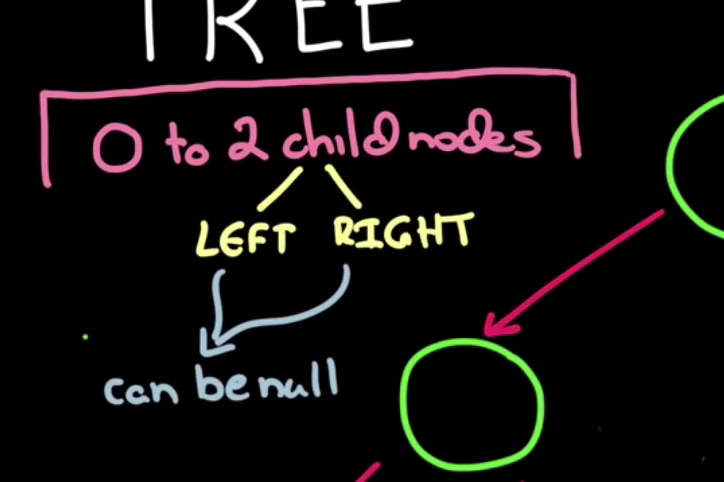 TREE
0 to 2 child nodes
LEFT RIGHT
can be null